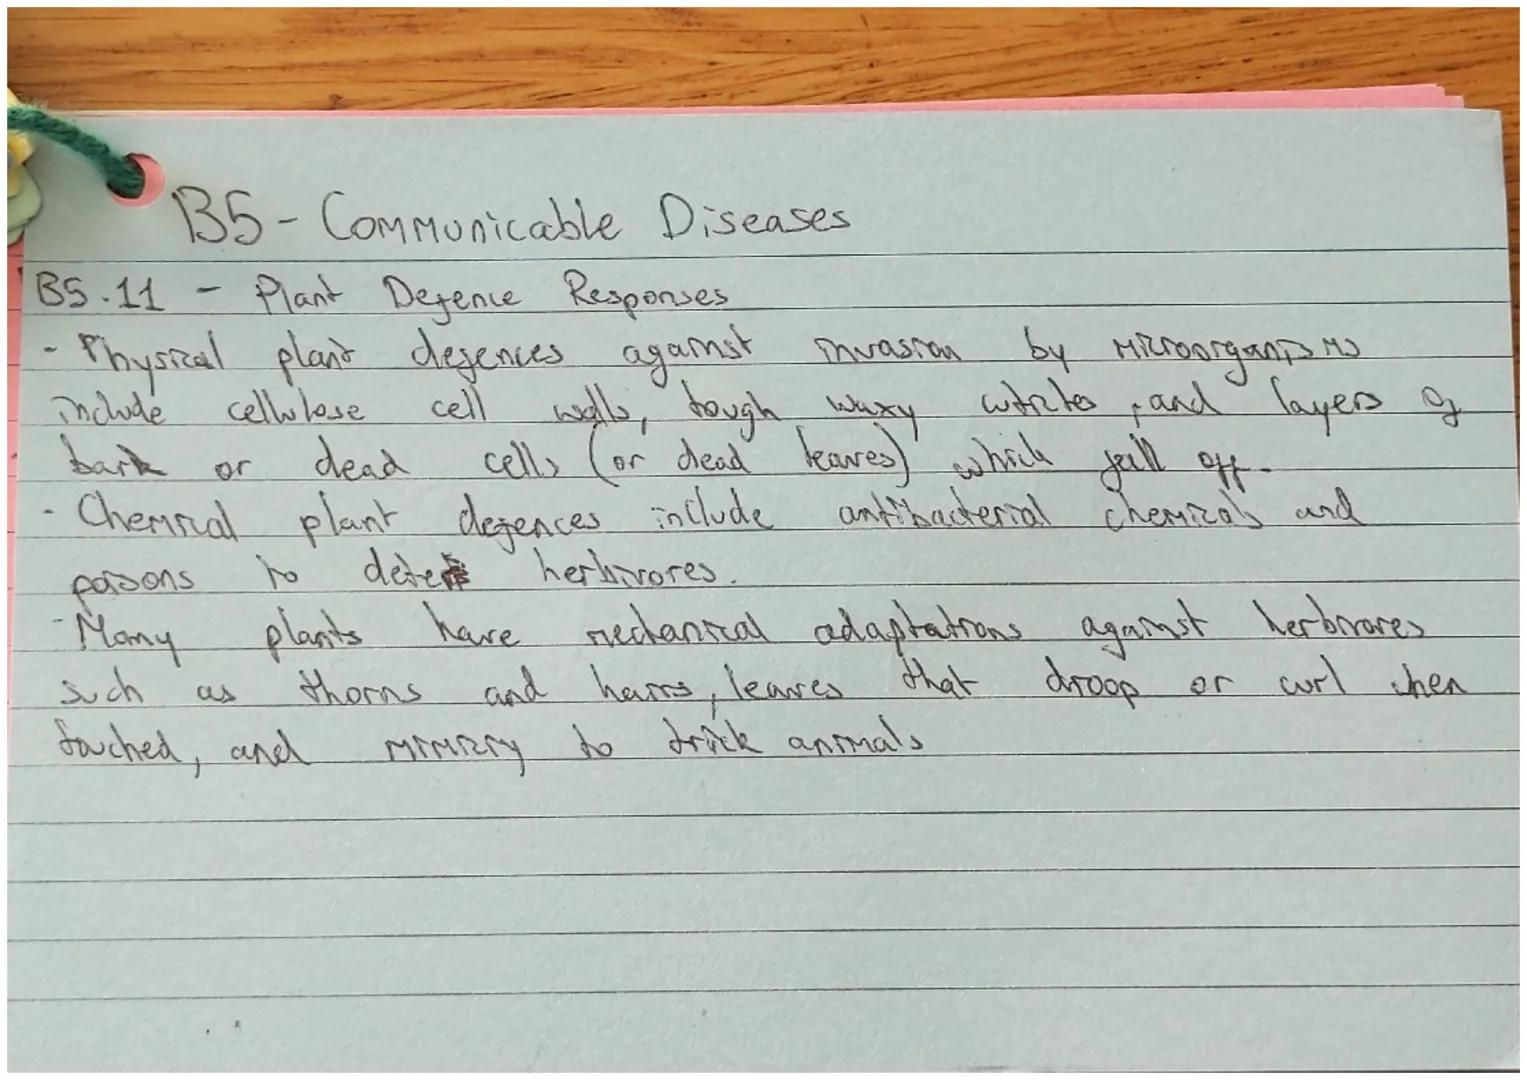 B5 - Communicable Diseases
B5.11 - Plant Defence Responses
- Physical plant defences against invasion by microorganisms
include cellulose cell walls, tough waxy cuticles, and layers of
bark or dead cells (or dead leaves) which fall off.
- Chemical plant defences include antibacterial chemicals and
poisons to deter herbivores.
- Many plants have mechanical adaptations against herbivores
such as thorns and hairs, leaves that droop or curl when
touched, and mimicry to trick animals